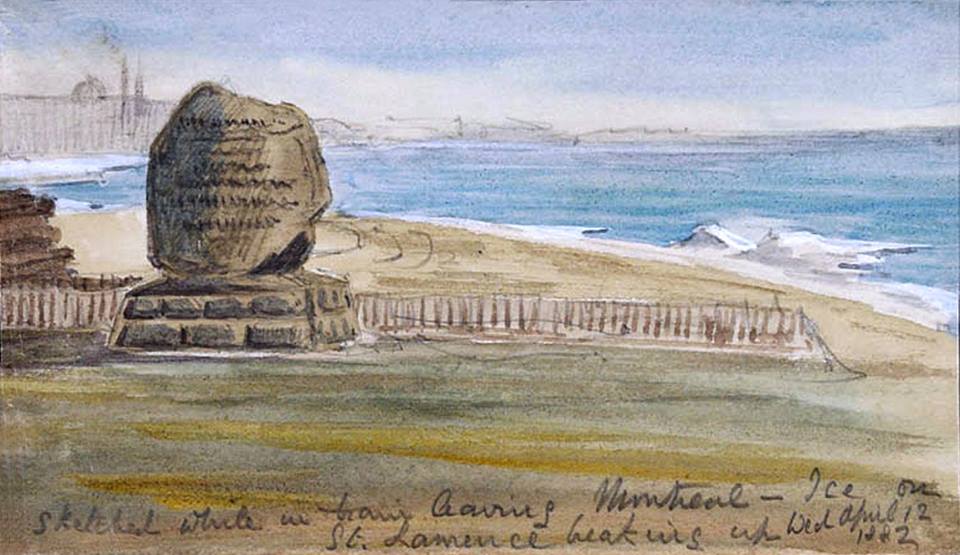 Sketched while in train leaving Montreal — Ice on
St. Lawrence breaking up Wed April 12
1882